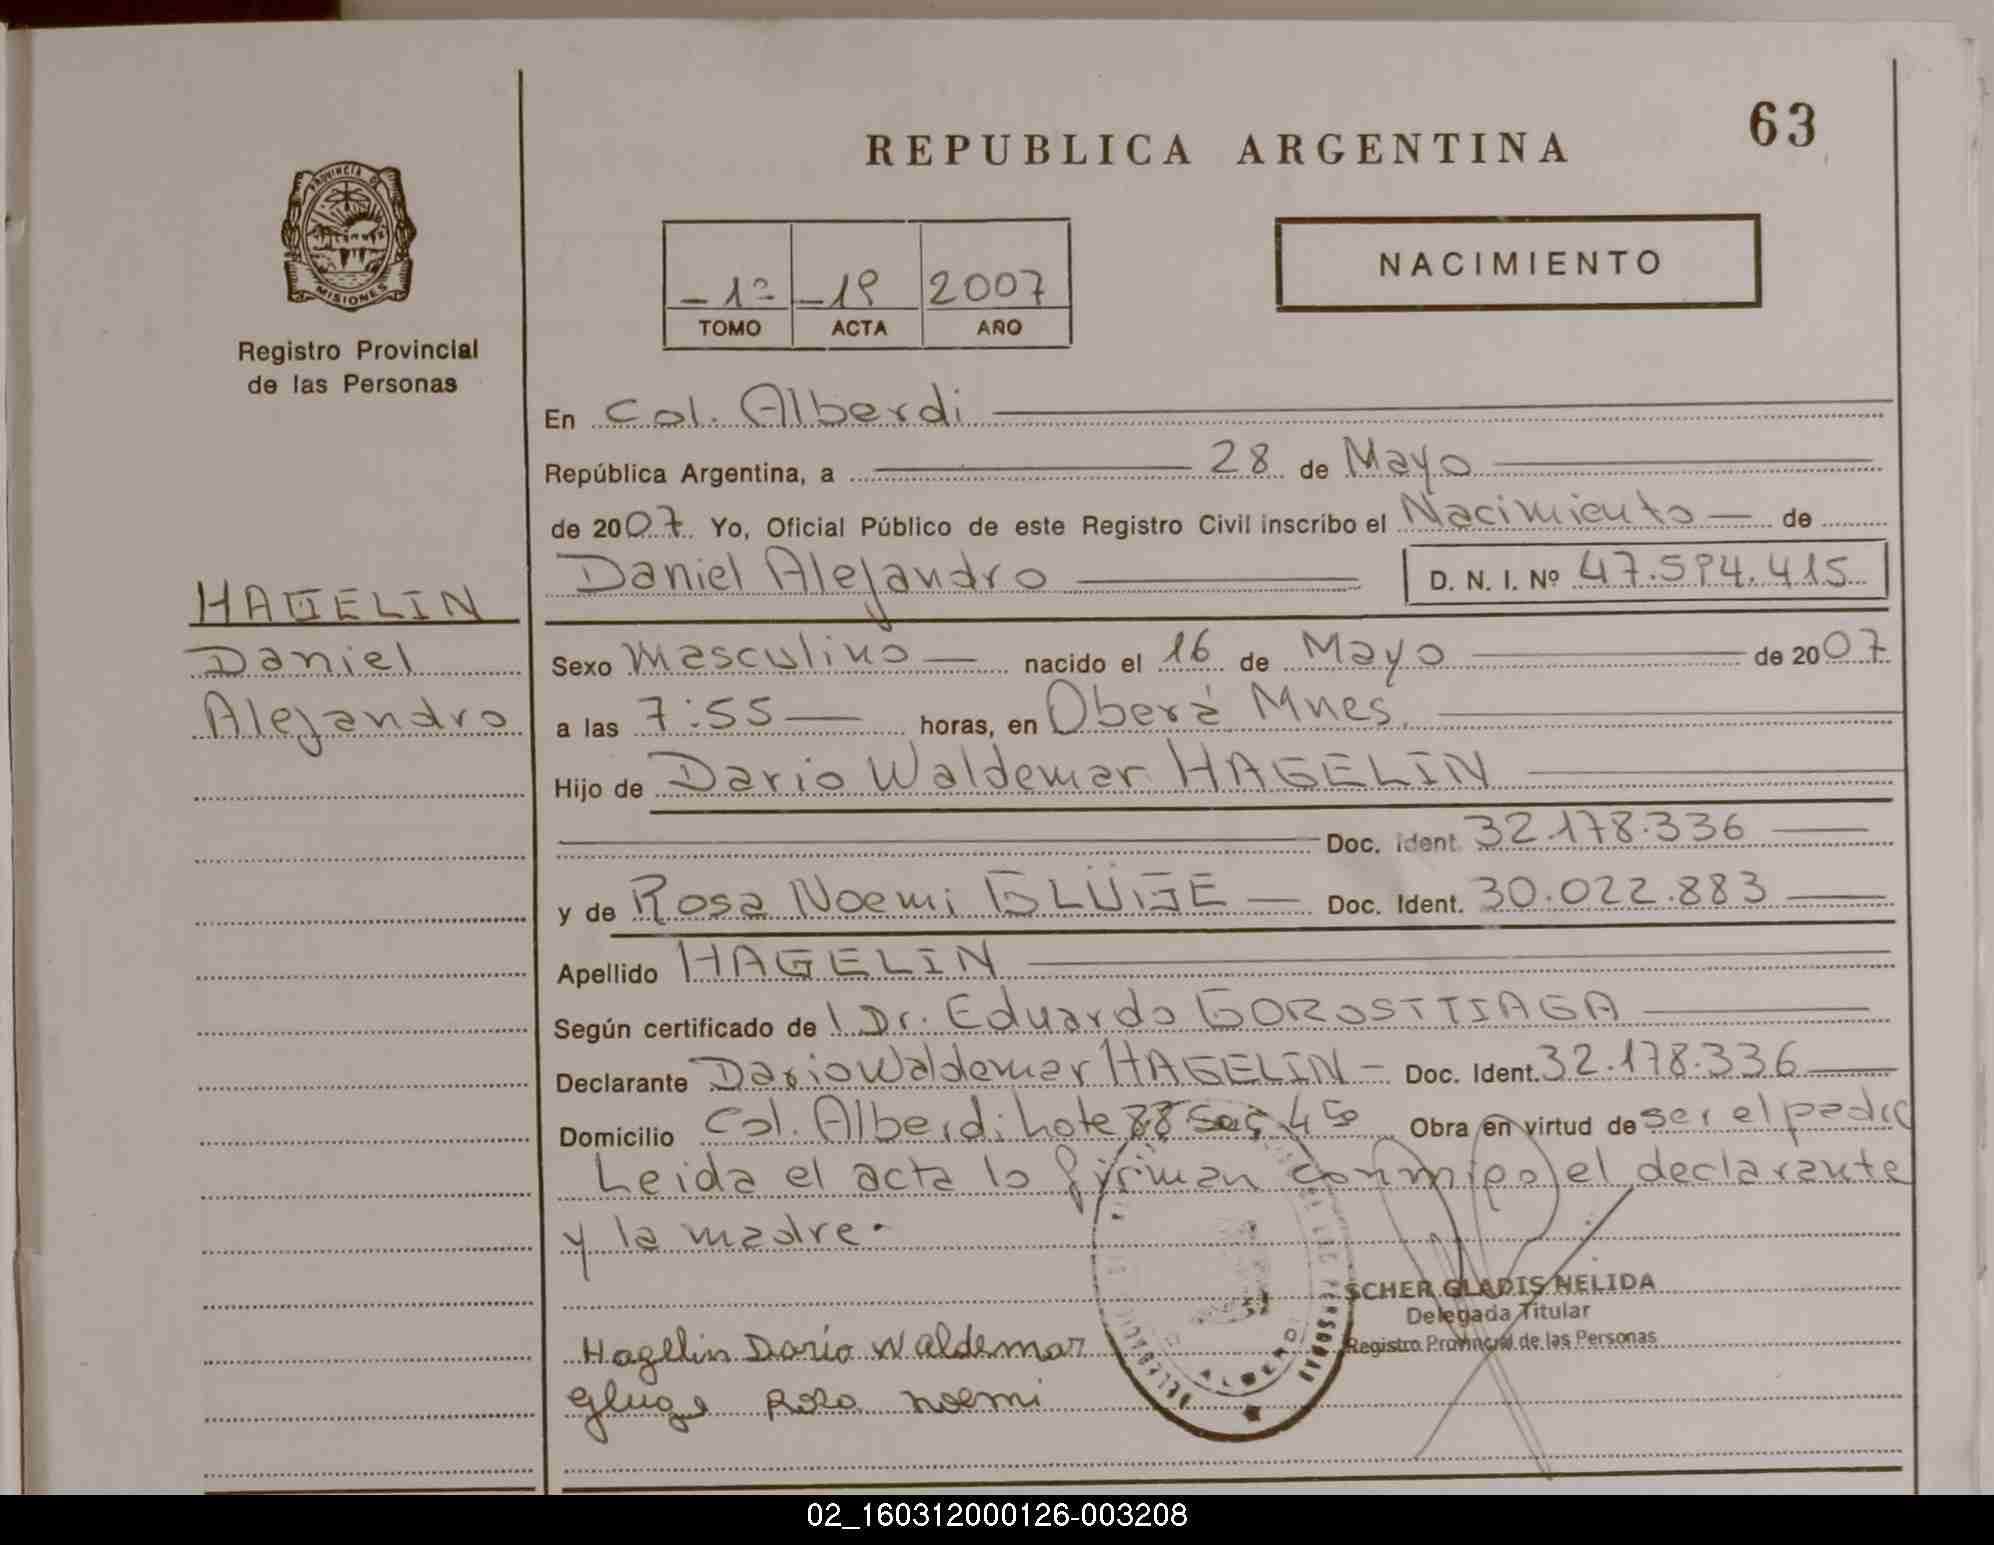 63
REPUBLICA ARGENTINA
PROVINCIA DE
MISIONES
Registro Provincial
de las Personas
1º 19 2007
TOMO ACTA AÑO
NACIMIENTO
En Col. Alberdi
República Argentina, a 28 de Mayo
de 2007. Yo, Oficial Público de este Registro Civil inscribo el Nacimiento de
Daniel Alejandro D. N. I. Nº 47.594.415
HAGELIN
Daniel
Alejandro
Sexo Masculino nacido el 16 de Mayo de 2007
a las 7:55 horas, en Oberá Mnes.
Hijo de Dario Waldemar HAGELIN
Doc. Ident. 32.178.336
y de Rosa Noemi GLÜGE Doc. Ident. 30.022.883
Apellido HAGELIN
Según certificado de Dr. Eduardo GOROSTIAGA
Declarante Dario Waldemar HAGELIN Doc. Ident. 32.178.336
Domicilio Col. Alberdi Lote 88 Obra en virtud de ser el padre
Leida el acta lo firman conmigo el declarante
y la madre.
SCHER GLADIS NELIDA
Delegada Titular
Registro Provincial de las Personas
Hagelin Dario Waldemar
Gluge Rosa noemi
02_160312000126-003208